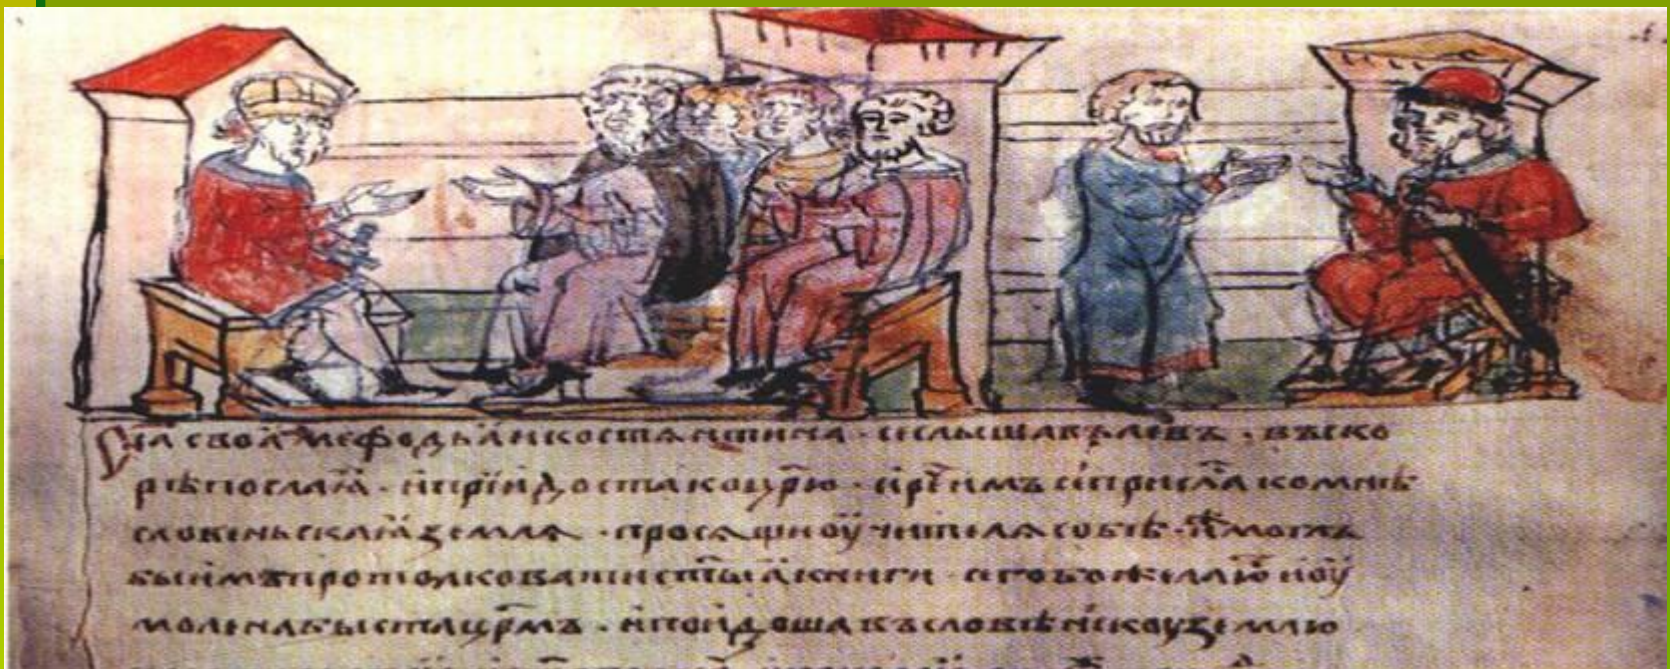 сꙗ своꙗ мефодьꙗ и костѧнтина · и слышавъ левъ · въско
рѣ посла ꙗ · и прїидоста ко цр҃ю · и рече имъ се присла ко мнѣ
словеньскаꙗ землѧ · просѧщи оучителѧ собѣ · моглъ
бы имъ протолковати ст҃ыꙗ книги · сего бо желаю и оу
молена быста цр҃мъ · и поидоша въ словѣньскоую землю